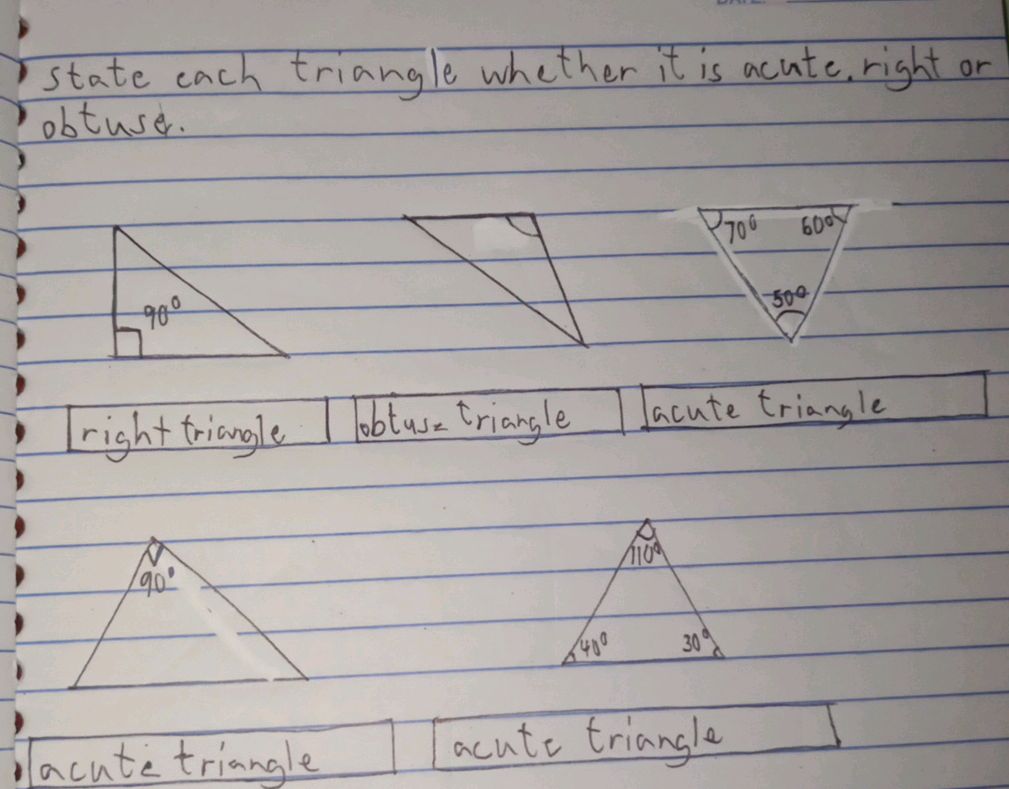 state each triangle whether it is acute, right or
obtuse.
90°
70° 60°
50°
right triangle obtuse triangle acute triangle
90°
110°
40° 30°
acute triangle acute triangle